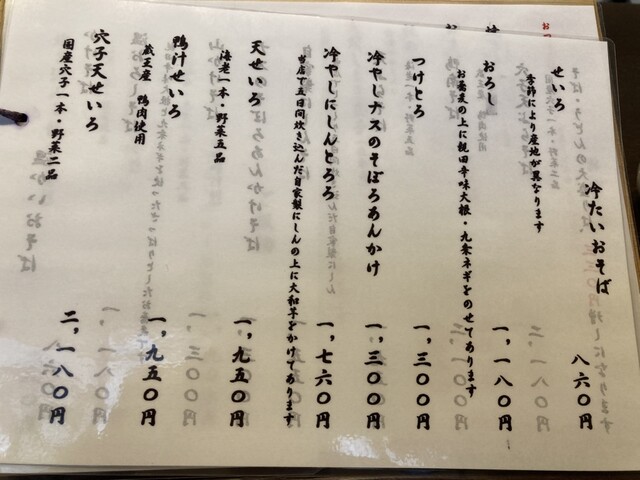 冷たいおそば
せいろ 八六〇円
季節により産地が異なります
おろし 一,一八〇円
お蕎麦の上に親田辛味大根・九条ネギをのせてあります
つけとろ 一,三〇〇円
冷やしナスのそぼろあんかけ 一,三〇〇円
冷やしにしんとろろ 一,七六〇円
当店で五日間炊き込んだ自家製にしんの上に大和芋をかけてあります
天せいろ 一,九五〇円
海老一本・野菜五品
鴨汁せいろ 一,九五〇円
蔵王産 鴨肉使用
穴子天せいろ 二,一八〇円
国産穴子一本・野菜二品